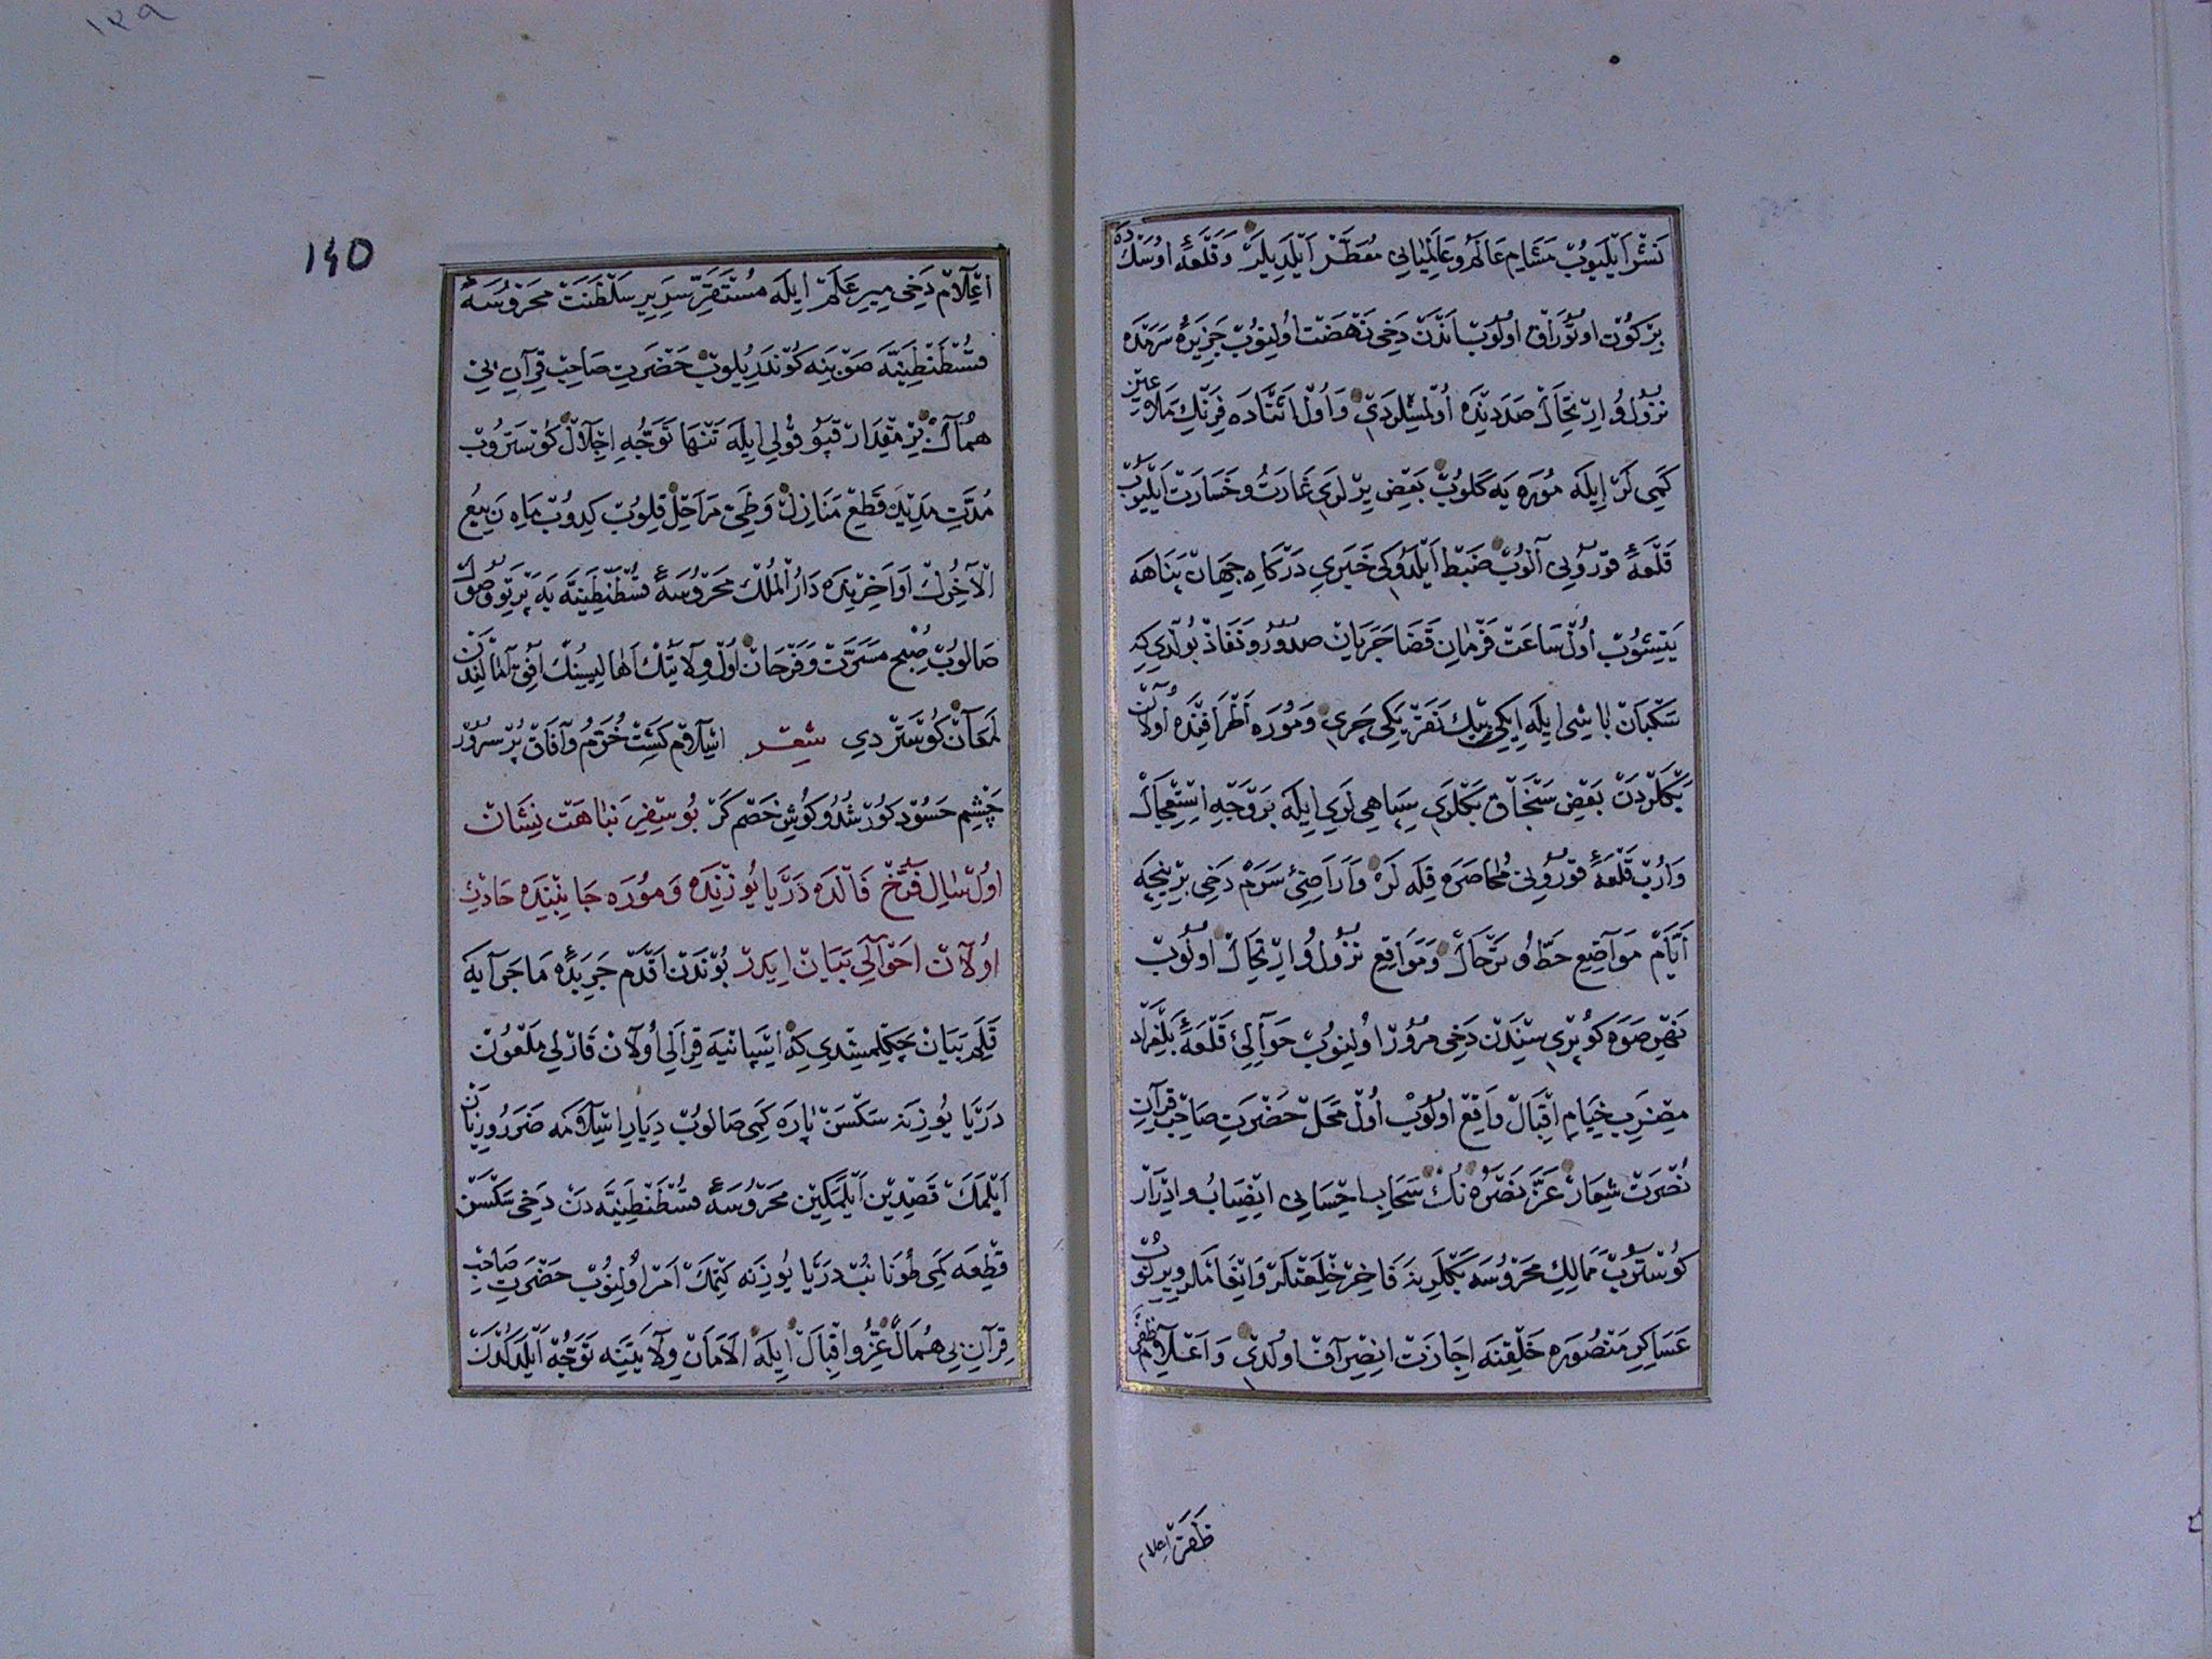 نشر ایلیوب مشام عالم و عالمیانی معطر ایلدیلر و قلعۀ اوسك ده
بر كون اوتوراق اولوب اندن دخی نهضت اولنوب جزیرۀ سرمده
نزول و ارتحال صددینده اولمشلردی و اول اثناده فرنك ملاعین
كمی لر ایله موره یه كلوب بعض یرلری غارت و خسارت ایلیوب
قلعۀ قورونی آلوب ضبط ایلدوكی خبری دركاه جهان پناهه
یتیشوب اول ساعت فرمان قضا جریان صدور و نفاذ بولدی كه
سكبان باشی ایله ایكی بیك نفر یكی چری و موره اطرافنده اولان
بكلردن بعض سنجاق بكلری سپاهی لری ایله بر وجه استعجال
واروب قلعۀ قورونی محاصره قیله لر و اراضئ سرم دخی بر نیچه
ایام مواضع حط و ترحال و مواقع نزول و ارتحال اولوب
نهر صوه كوپری سندن دخی مرور اولنوب حوالئ قلعۀ بلغراد
مضرب خیام اقبال واقع اولوب اول محل حضرت صاحب قران
نصرت شعار عز نصره نك سحاب احسانی انصباب و ادرار
كوستروب ممالك محروسه بكلرینه فاخر خلعتلر و انعاملر ویریلوب
عساكر منصوره خلقنه اجازت انصراف اولدی و اعلام ظفر
ظفر اعلام
140
اعلام دخی میر علم ایله مستقر سریر سلطنت محروسۀ
قسطنطنیه صوبنه كوندریلوب حضرت صاحب قران بی
همال بر مقدار قپو قولی ایله تنها توجه اجلال كوستروب
مدت مدید قطع منازل و طی مراحل قلوب كیدوب ماه ربیع
الآخرك اواخرنده دار الملك محروسۀ قسطنطنیه یه پرتو وصول
صالوب صبح مسرت و فرحات اول ولایتك اهالیسینك افق آمالیندن
لمعان كوستردی شعر اسلام كشت خرم و آفاق پر سرور
چشم حسود كور شد و كوش خصم كر بو سفر نباهت نشان
اول سال فرخ فالده دریا یوزنده و موره جانبنده حادث
اولان احوالی بیان ایدر بوندن اقدم جریدۀ ماجرایه
قلم بیان چكلمیشدی كه اسپانیه قرالی اولان قارلی ملعون
دریا یوزینه سكسن پاره كمی صالوب دیار اسلامه ضرر و زیان
ایلمك قصدین ایلمكین محروسۀ قسطنطنیه دن دخی سكسن
قطعه كمی طونانب دریا یوزنه كتمك امر اولنوب حضرت صاحب
قران بی همال عز و اقبال ایله الامان ولایتینه توجه ایلدكدن